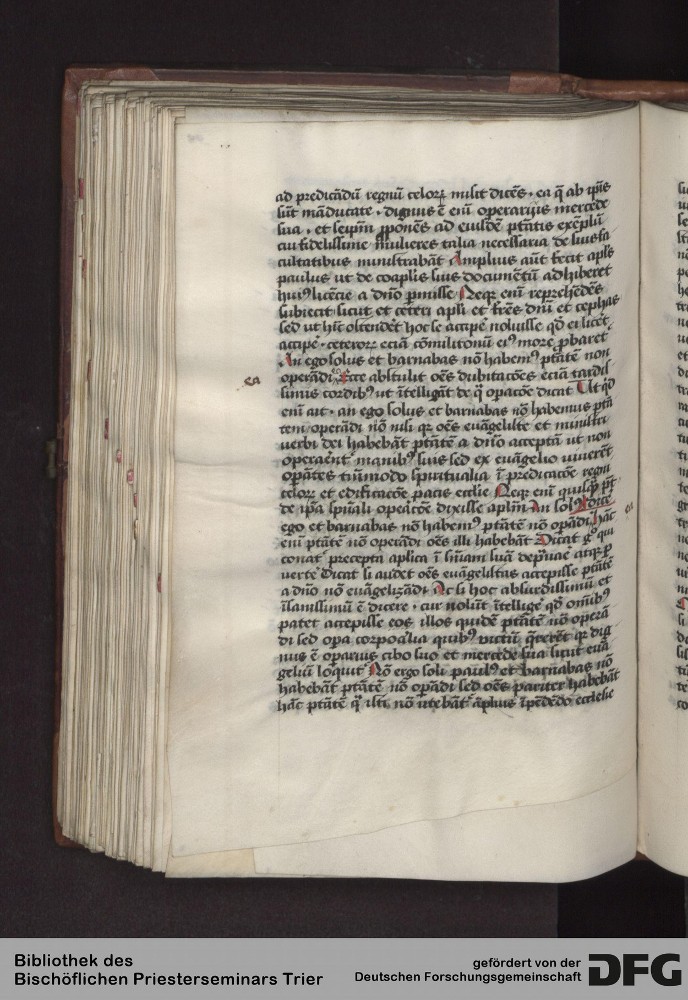 ad predicādū regnū celorꝝ misit dicēs · ea q̄ ab ip̄is
sūt māducate · dignus ē enī operarijs mercede
sua · et seip̄m ꝓponēs ad eiusdē ptātis exēplū
cui fidelissime mulieres talia necessaria de suis fa
cultatibus ministrabāt Amplius aūt fecit apl̄s
paulus ut de coaplis̄ suis documētū adhiberet
huiꝰ licēcie a dn̄o ꝑmisse Neqꝫ enī reprehēdēs
subiecit sicut et ceteri apl̄i et fr̄es dn̄i et cephas
sed ut hīc ostendēt hoc se accipe noluisse qd̄ ei licēt
accipe · ceterorꝝ eciā cōmilitonū eiꝰ more ꝓbaret
An ego solus et barnabas nō habemꝰ ptātē non
operādi Ecce abstulit oēs dubitacōes eciā tardis
ea
simis cordibꝰ ut ītelligāt de q̄ opacōe dicat Ut qd
enī ait · an ego solus et barnabas nō habemus ptā
tem operādi nō nisi qꝫ oēs euāgeliste et ministri
uerbi dei habebāt ptātē a dn̄o acceptā ut non
operaēnt manibꝰ suis sed ex euāgelio uiuerēt
opātes tm̄modo spiritualia ī predicacōe regni
celorꝝ et edificacōe pacis eccl̄ie Neqꝫ enī quisqꝫ pt̄
de ip̄a spūali opeacōe dixisse aplm̄ An solꝰ
ego et barnabas nō habemꝰ ptātē nō opādi hāc
enī ptātē nō operādi oēs illi habebāt Dicat gͦ qui
conat precepta aplica ī sn̄iam suā dep̄uae atqꝫ ꝑ
uerte Dicat si audet oēs euāgelistas accepisse ptātē
a dn̄o nō euāgelizādi At si hoc absurdissimū et
īsanissimū ē dicere · cur nolūt ītellige qd̄ om̄ibꝰ
patet accepisse eos illos quidē ptātē nō operā
di sed opa corpoalia quibꝰ uictū q̄rerēt qꝫ dig
nus ē oparius cibo suo et mercede sua sicut euā
geliū loquit Nō ergo soli paulꝰ et barnabas nō
habebāt ptātē nō opādi sed oēs pariter habebāt
hāc ptātē q̄ isti nō utebāt āplius īpēdēdo ecclesie
Bibliothek des
Bischöflichen Priesterseminars Trier
gefördert von der
Deutschen Forschungsgemeinschaft
DFG